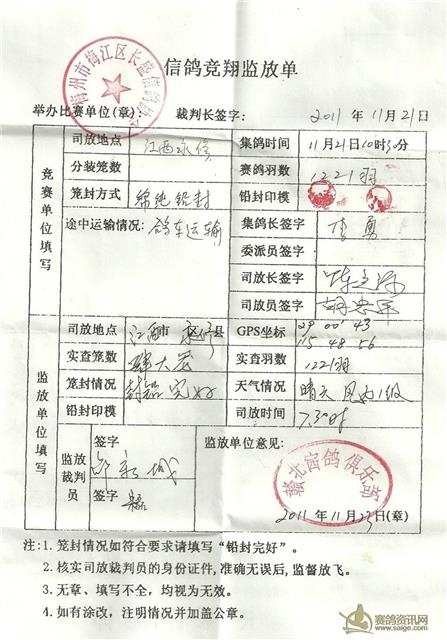 信鸽竞翔监放单
梅州市梅江区长盛信鸽
举办比赛单位(章): 裁判长签字: 2011 年 11月21日
竞赛单位填写
司放地点 江西永修 集鸽时间 11月21日10时30分
分装笼数 赛鸽羽数 1221羽
笼封方式 绵绳铅封 铅封印模
途中运输情况: 鸽车运输 集鸽长签字 李勇
委派员签字
司放长签字
司放员签字
监放单位填写
司放地点 江西市 永修县 GPS坐标 29 00 43
115 48 56
实查笼数 肆大笼 实查羽数 1221羽
笼封情况 封铅完好 天气情况 晴天 风力1级
铅封印模 司放时间 7.30时
监放裁判员 签字 监放单位意见:
签字
赣北赛鸽俱乐部
2011 年 11月23日(章)
注:1. 笼封情况如符合要求请填写“铅封完好”。
2. 核实司放裁判员的身份证件,准确无误后,监督放飞。
3. 无章、填写不全,均视为无效。
4. 如有涂改,注明情况并加盖公章。
赛鸽资讯网
www.saige.com